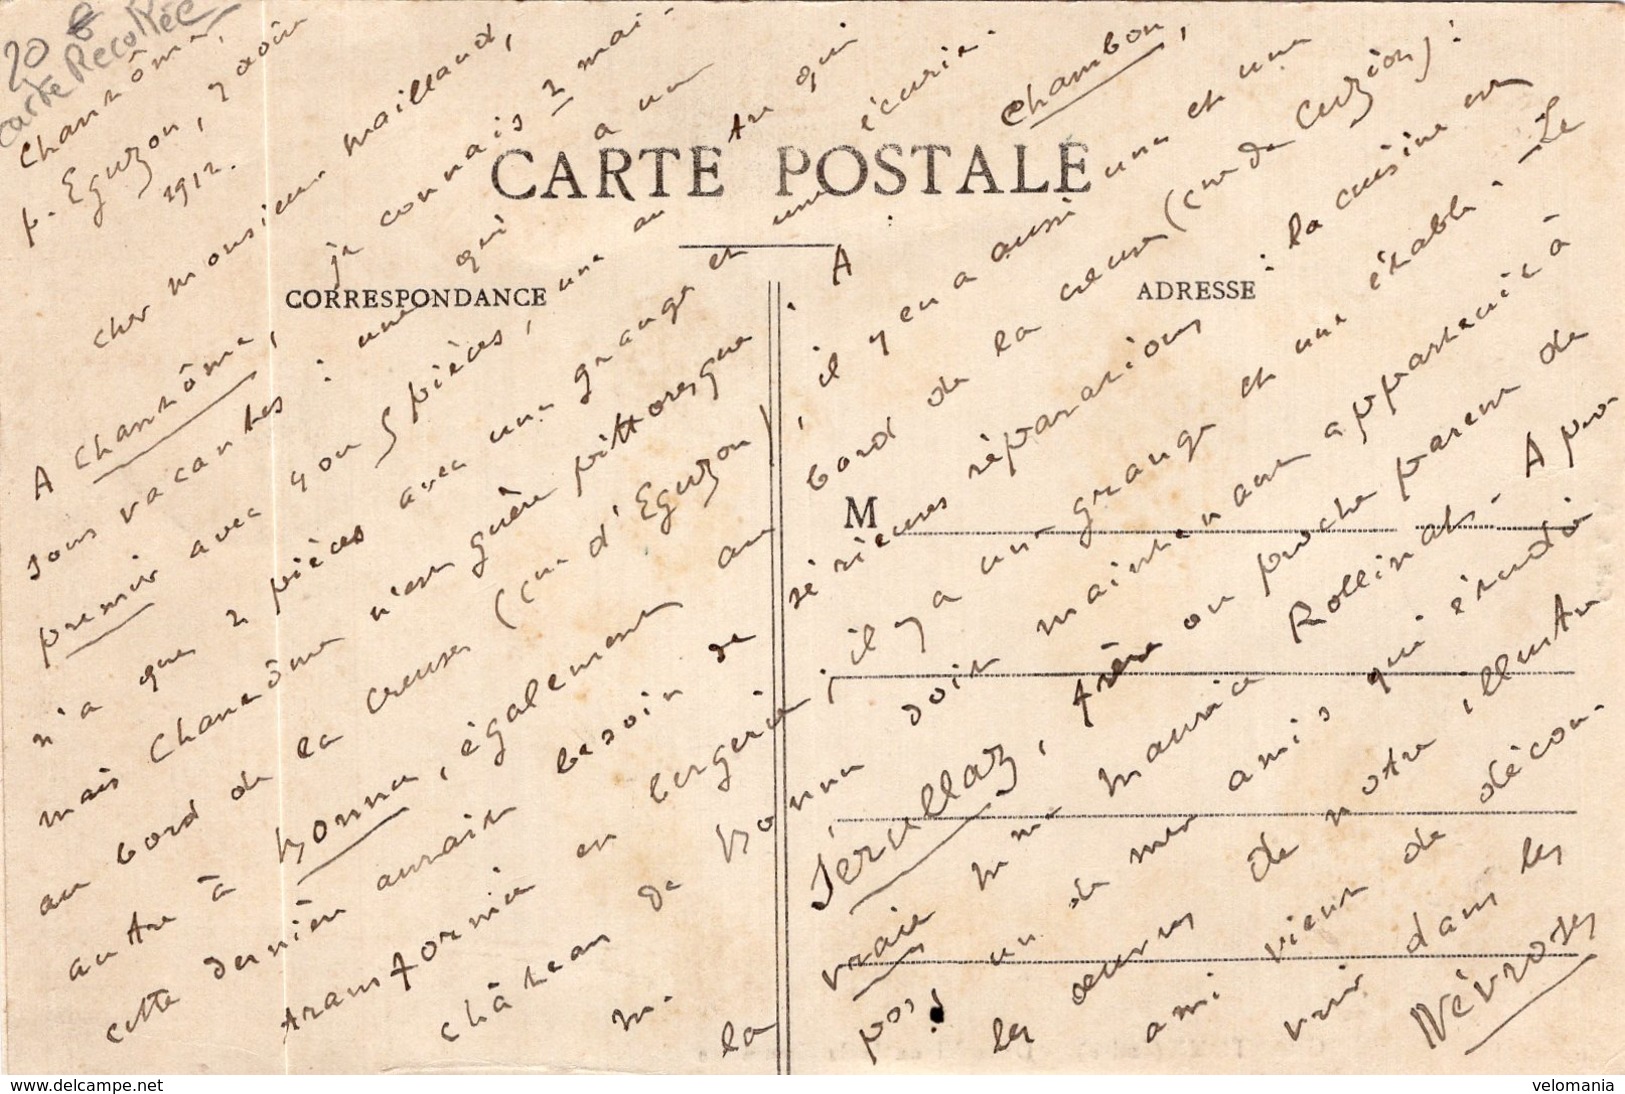 20 €
Carte Recoltée
Chantôme,
p. Eguzon, 7 août
1912.
Cher monsieur Maillaud,
A Chantôme, je connais 2 mai-
sons vacantes : une qui a un
premier avec 4 ou 5 pièces, une autre qui
n'a que 2 pièces avec une grange et une écurie.
mais Chantôme n'est guère pittoresque. A Chambon,
au bord de la Creuse (cne d'Eguzon), il y en a aussi une et une
autre à Bonnu, également au bord de la Creuse (cne de Cuzion) :
cette dernière aurait besoin de sérieuses réparations : la cuisine est
transformée en bergerie ; il y a une grange et une étable. - Le
château de Bonnu doit maintenant appartenir à
M. Sérullaz, frère ou proche parent de
la vraie Mme Maurice Rollinat. - A pro-
pos ! un de mes amis qui étudie
les oeuvres de notre illustre
ami vient de décou-
vrir dans les
Névroses
CARTE POSTALE
CORRESPONDANCE
ADRESSE
M
www.delcampe.net
velomania